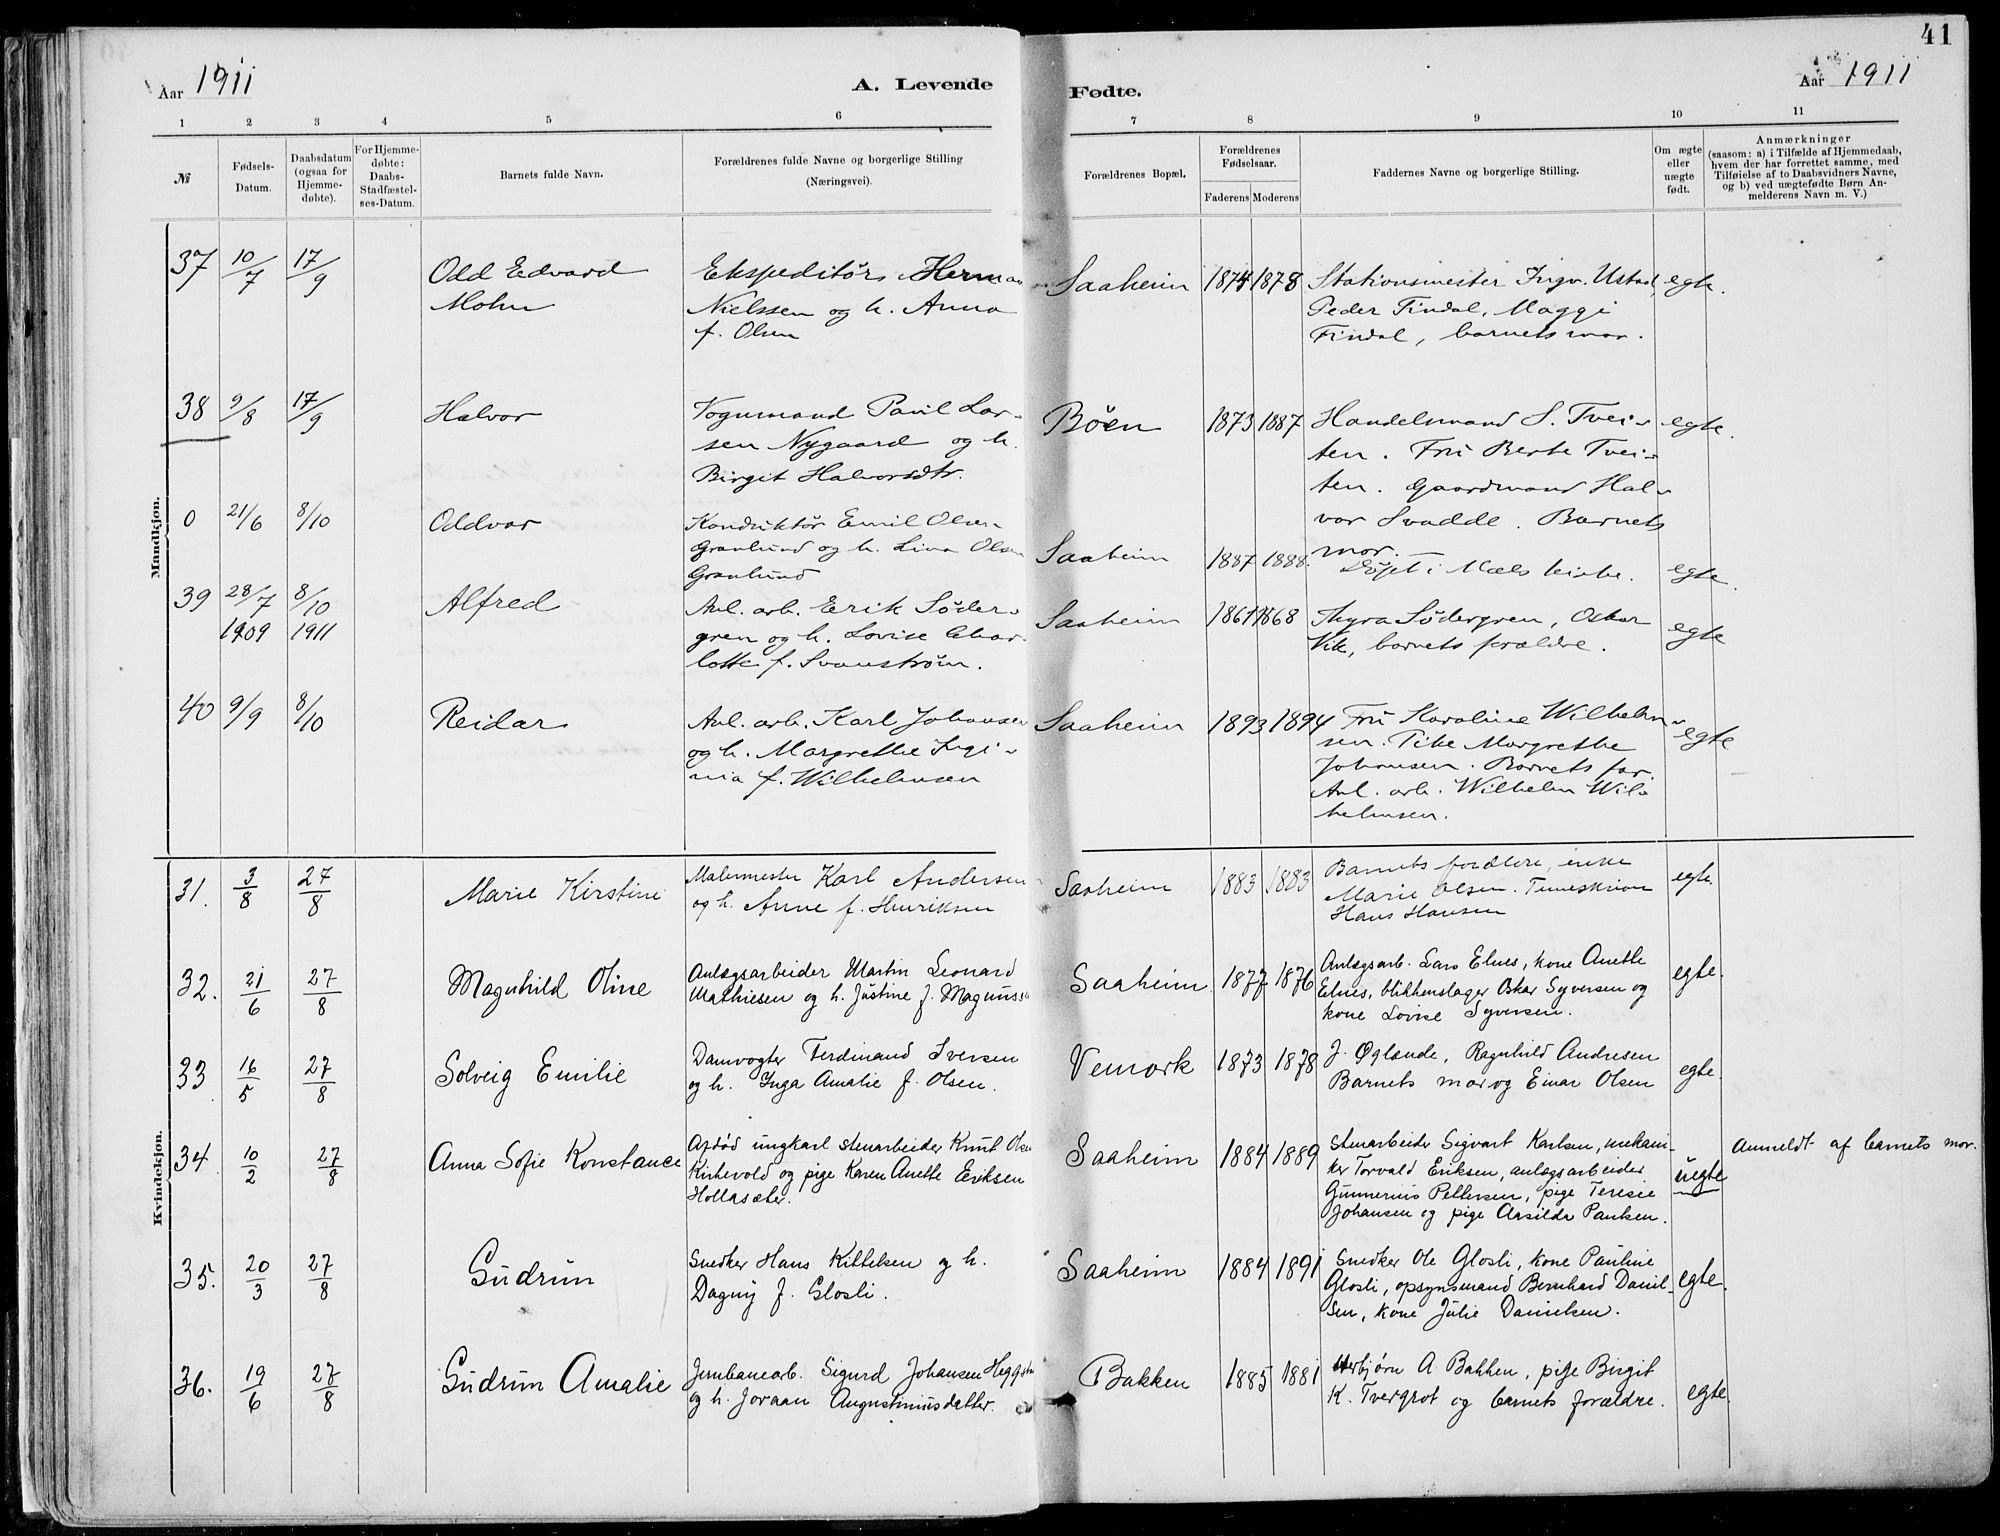 41
Aar 1911
A. Levende Fødte.
Aar 1911
1 2 3 4 5 6 7 8 9 10 11
№
Fødsels-
Datum.
Daabsdatum
(ogsaa for
Hjemme-
døbte).
For Hjemme-
døbte:
Daabs-
Stadfæstel-
ses-Datum.
Barnets fulde Navn.
Forældrenes fulde Navne og borgerlige Stilling
(Næringsvei).
Forældrenes Bopæl.
Forældrenes
Fødselsaar.
Faderens Moderens
Faddernes Navne og borgerlige Stilling.
Om ægte
eller
uægte
født.
Anmærkninger
(saasom: a) i Tilfælde af Hjemmedaab,
hvem der har forrettet samme, med
Tilføielse af to Daabsvidners Navne,
og b) ved uægtefødte Børn An-
melderens Navn m. V.)
Mandkjøn.
37 10/7 17/9
Odd Edvard
Mohn
Ekspeditør Herman
Nielssen og h. Anna
f. Olsen
Saaheim 1874 1878
Stationsmester Ingv. Ustad,
Peder Findal, Maggi
Findal, barnets mor.
egte.
38 9/8 17/9
Halvor
Vognmand Paul Lar-
sen Nygaard og h.
Birgit Halvorsdtr.
Bøen 1873 1887
Handelsmand S. Tvei-
ten. Fru Berte Tvei-
ten. Gaardmand Hal-
vor Svadde. Barnets
mor.
egte.
0 21/6 8/10
Oddvar
Konduktør Emil Olsen
Granlund og h. Lina Olsen
Granlund
Saaheim 1887 1888.
Døpt i Mæls kirke.
egte.
39 28/7 1909 8/10 1911
Alfred
Anl. arb. Erik Söder-
gren og h. Lovise Char-
lotte f. Svanström.
Saaheim 1861 1868
Thyra Södergren, Oskar
Vik, barnets forældre.
egte
40 9/9 8/10
Reidar
Anl. arb. Karl Johansen
og h. Margrethe Ingi-
nia f. Wilhelmsen
Saaheim 1893 1894
Fru Karoline Wilhelm-
sen. Pike Margrethe
Johansen. Barnets far.
Anl. arb. Wilhelm Wil-
helmsen.
egte
Kvindekjøn.
31. 3/8 27/8
Marie Kirstine
Malermester Karl Andersen
og h. Anne f. Henriksen
Saaheim 1883 1883
Barnets forældre, enke
Marie Olsen. Timeskriver
Hans Hansen
egte.
32. 21/6 27/8
Magnhild Oline
Anlægsarbeider Martin Leonard
Mathiesen og h. Justine f. Magnussen
Saaheim 1877 1876
Anlægsarb. Lars Elnes, kone Anette
Elnes, blikkenslager Oskar Syversen og
kone Lovise Syversen.
egte.
33 16/5 27/8
Solveig Emilie
Damvogter Ferdinand Iversen
og h. Inga Amalie f. Olsen.
Vemork 1873 1878
J. Øglænde, Ragnhild Andresen
Barnets mor og Einar Olsen
egte.
34 10/2 27/8
Anna Sofie Konstance
Afdød ungkarl stenarbeider Knut Olsen
Kirkevold og pige Karen Anette Eriksen
Hollasæter.
Saaheim 1884 1889
Stenarbeider Sigvart Karlsen, mekani-
ker Torvald Eriksen, anlægsarbeider
Gunnerius Pettersen, pige Teresie
Johansen og pige Aasilda Paulsen.
uegte
Anmeldt af barnets mor.
35. 20/3 27/8
Gudrun
Snedker Hans Kittelsen og h.
Dagny f. Glosli.
Saaheim 1884 1891
Snedker Ole Glosli, kone Pauline
Glosli, opsynsmand Bernhard Daniel-
sen, kone Julie Danielsen.
egte.
36. 19/6 27/8
Gudrun Amalie
Jernbanearb. Sigurd Johansen
og h. Joraan Augustiniusdatter.
Bakken 1885 1881
Herbjørn A. Bakken, pige Birgit
K. Tvergrot og barnets forældre.
egte.